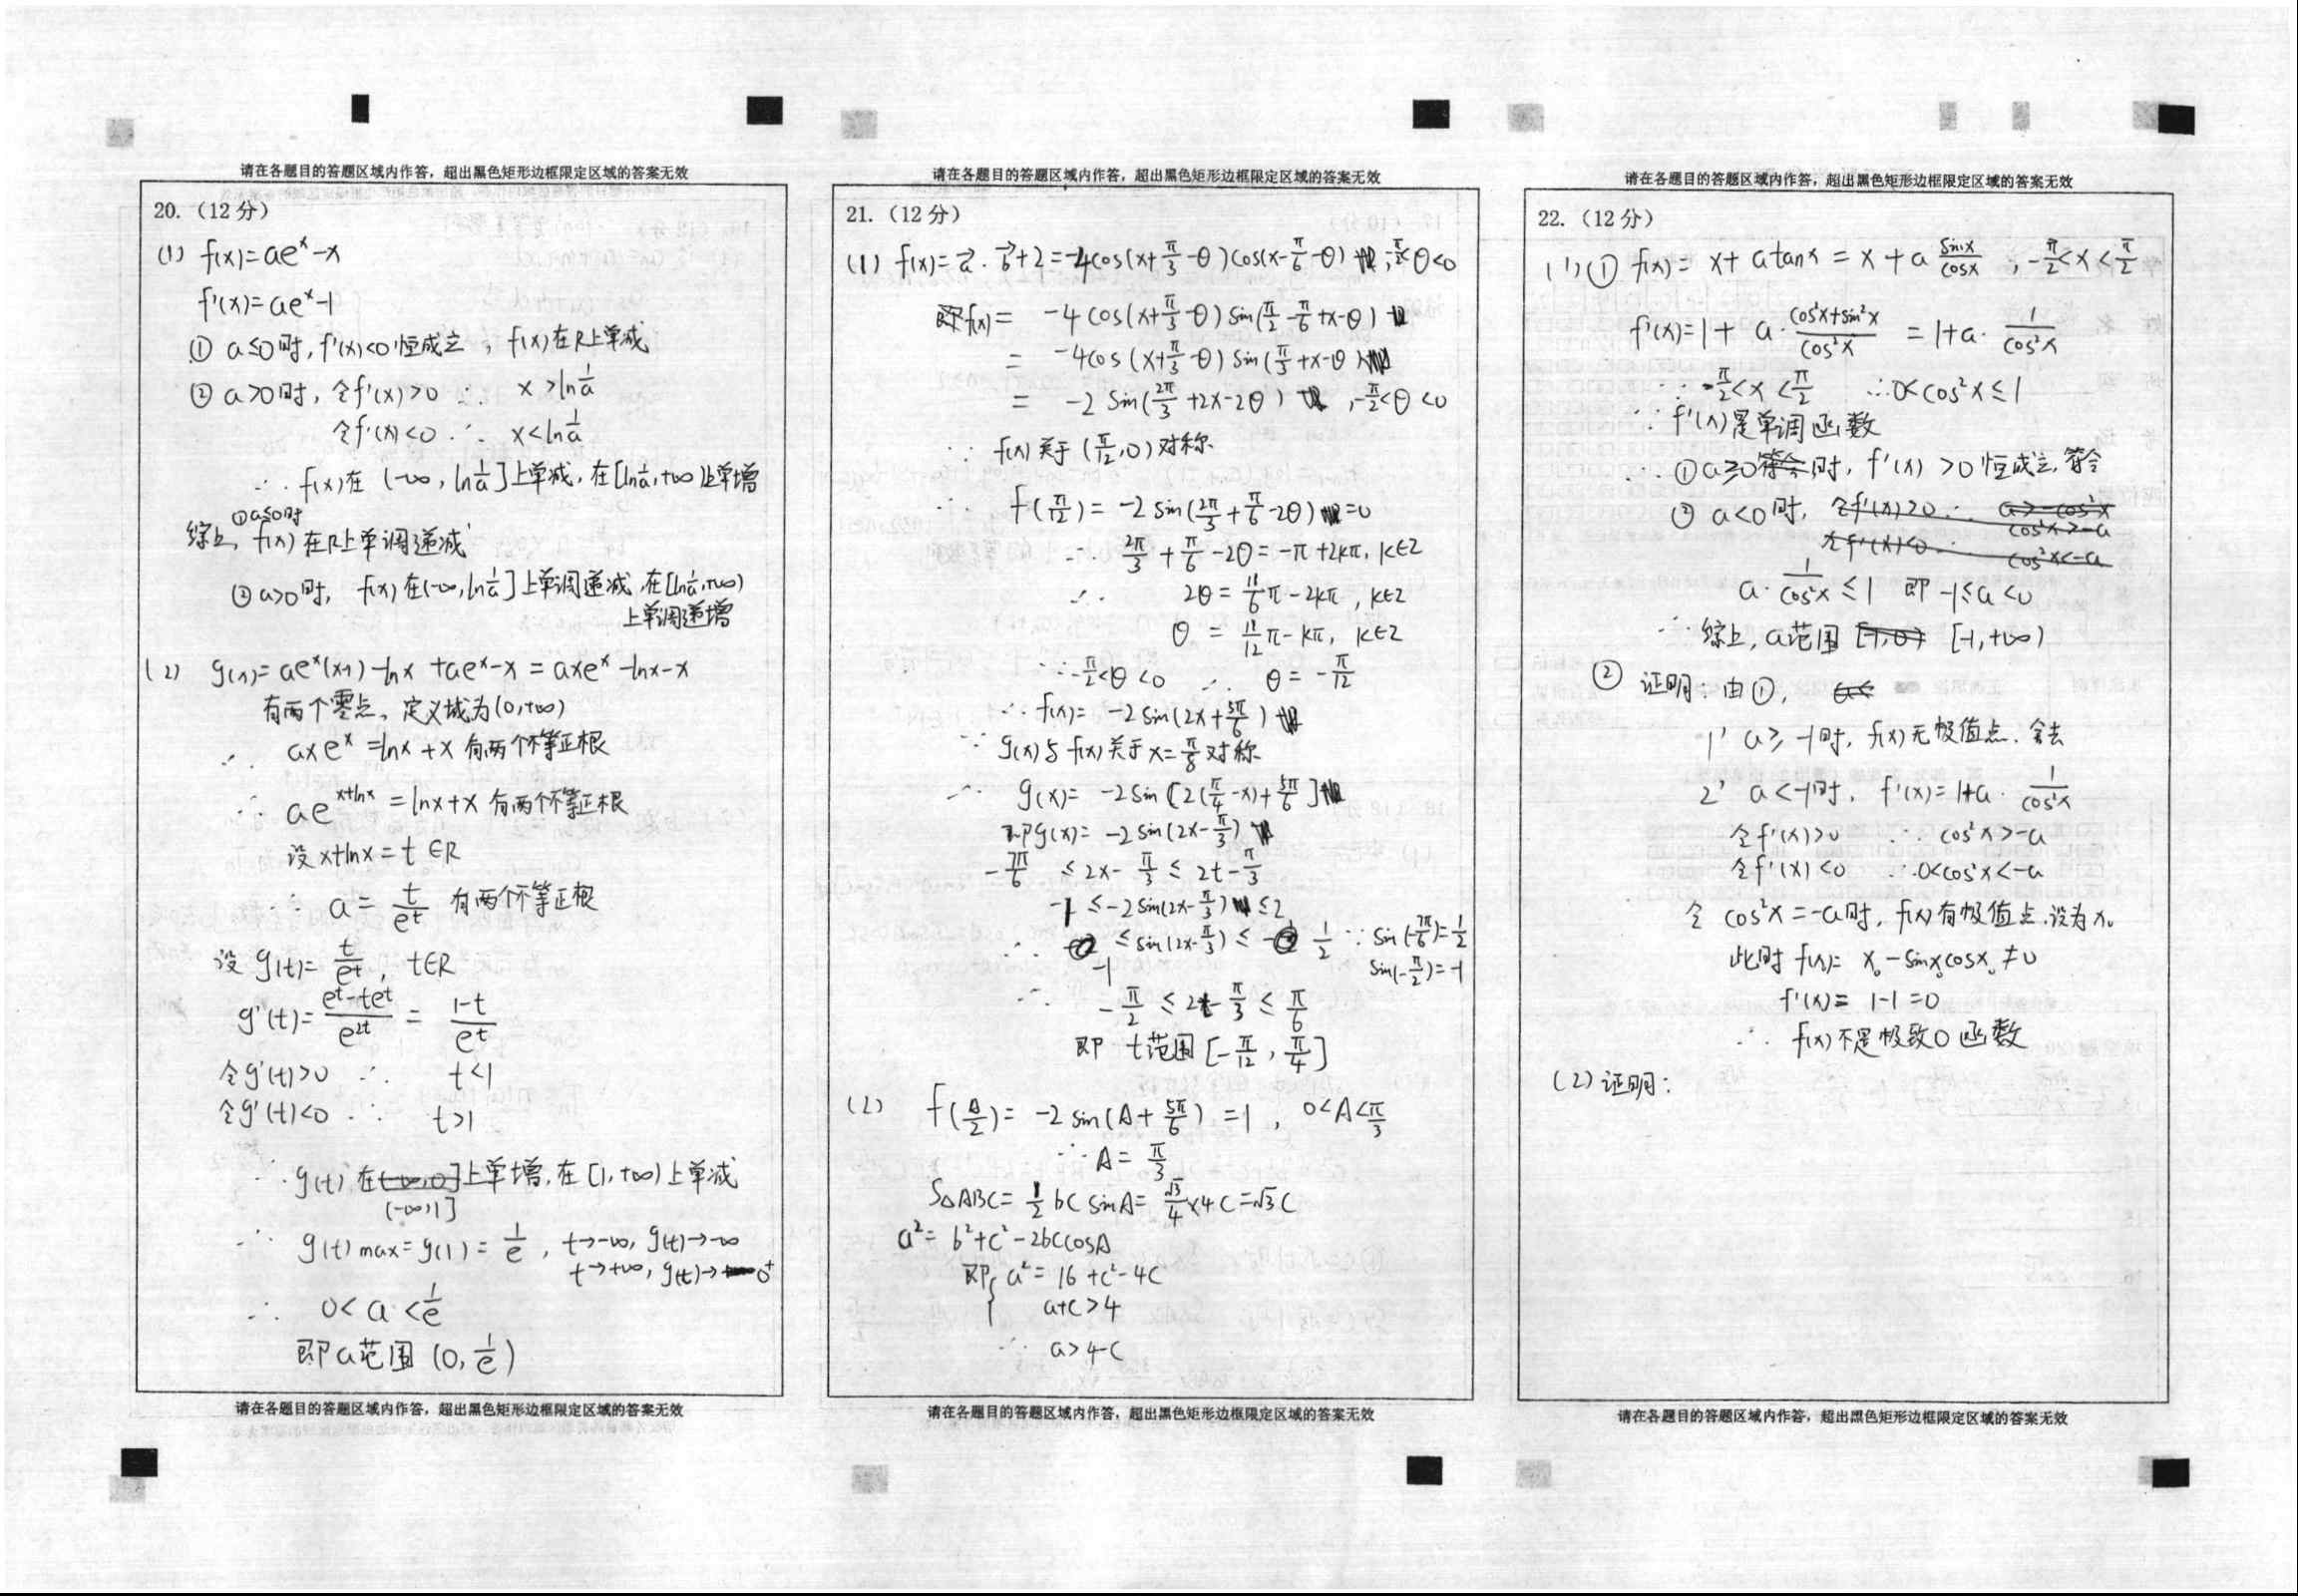 请在各题目的答题区域内作答，超出黑色矩形边框限定区域的答案无效
20.（12 分）
(1) f(x)=ae^x-x
f'(x)=ae^x-1
① a≤0时, f'(x)<0恒成立, f(x)在R上单减
② a>0时, 令f'(x)>0 ∴ x>ln1/a
令f'(x)<0 ∴ x<ln1/a
∴ f(x)在 (-∞, ln1/a]上单减, 在[ln1/a,+∞)上单增
综上, ①a≤0时 f(x)在R上单调递减
②a>0时, f(x)在(-∞,ln1/a]上单调递减,在[ln1/a,+∞)
上单调递增
(2) g(x)=ae^x(x-1)-lnx+ae^x-x=axe^x-lnx-x
有两个零点、定义域为(0,+∞)
∴ axe^x=lnx+x 有两个不等正根
∴ ae^(x+lnx)=lnx+x 有两个不等正根
设x+lnx=t∈R
∴ a=t/e^t 有两个不等正根
设 g(t)=t/e^t, t∈R
g'(t)=(e^t-te^t)/e^2t = (1-t)/e^t
令g'(t)>0 ∴ t<1
令g'(t)<0 ∴ t>1
∴ g(t)在(-∞,0]上单增,在[1,+∞)上单减
(-∞,1]
∴ g(t)max=g(1)=1/e, t→-∞, g(t)→-∞
t→+∞, g(t)→0⁺
∴ 0<a<1/e
即a范围 (0,1/e)
请在各题目的答题区域内作答，超出黑色矩形边框限定区域的答案无效
请在各题目的答题区域内作答，超出黑色矩形边框限定区域的答案无效
21.（12 分）
(1) f(x)=a⃗·b⃗+2=-4cos(x+π/3-θ)cos(x-π/6-θ) ,-π/2<θ<0
即f(x)= -4cos(x+π/3-θ)sin(π/2-π/6+x-θ)
= -4cos(x+π/3-θ)sin(π/3+x-θ)
= -2sin(2π/3+2x-2θ) ,-π/2<θ<0
∵ f(x)关于(π/12,0)对称
∴ f(π/12)=-2sin(2π/3+π/6-2θ)=0
∴ 2π/3+π/6-2θ=-π+2kπ, k∈Z
∴ 2θ=11/6π-2kπ, k∈Z
θ=11/12π-kπ, k∈Z
∵-π/2<θ<0 ∴ θ=-π/12
∴ f(x)=-2sin(2x+5π/6)
∵ g(x)与f(x)关于x=π/8对称
∴ g(x)=-2sin[2(π/4-x)+5π/6]
即g(x)=-2sin(2x-π/3)
-7π/6≤2x-π/3≤2t-π/3
-1≤-2sin(2x-π/3)≤2
∴ -1≤sin(2x-π/3)≤1/2 ∵ sin(-7π/6)=1/2
sin(-π/2)=-1
∴ -π/2≤2t-π/3≤π/6
即 t范围[-π/12,π/4]
(2) f(A/2)=-2sin(A+5π/6)=1, 0<A<π/3
∴A=π/3
S△ABC=1/2bcsinA=√3/4×4c=√3c
a²=b²+c²-2bccosA
即{ a²=16+c²-4c
a+c>4
∴ a>4-c
请在各题目的答题区域内作答，超出黑色矩形边框限定区域的答案无效
请在各题目的答题区域内作答，超出黑色矩形边框限定区域的答案无效
22.（12 分）
(1)① f(x)=x+atanx=x+a sinx/cosx ,-π/2<x<π/2
f'(x)=1+a·(cos²x+sin²x)/cos²x =1+a·1/cos²x
∵-π/2<x<π/2 ∴0<cos²x≤1
∵f'(x)是单调函数
∴①a≥0时, f'(x)>0恒成立,符合
②a<0时, 令f'(x)>0 ∴ a>-cos²x
cos²x>-a
令f'(x)<0 ∴ cos²x<-a
a·1/cos²x≤1 即 -1≤a<0
∴综上, a范围 [-1,0) [-1,+∞)
② 证明: 由①, a<
1' a≥-1时, f(x)无极值点. 舍去
2' a<-1时, f'(x)=1+a·1/cos²x
令f'(x)>0 ∴ cos²x>-a
令f'(x)<0 ∴0<cos²x<-a
令 cos²x=-a时, f(x)有极值点.设为x₀
此时f(x)= x₀-sinx₀cosx₀≠0
f'(x)=1-1=0
∴ f(x)不是极致0函数
(2)证明:
请在各题目的答题区域内作答，超出黑色矩形边框限定区域的答案无效